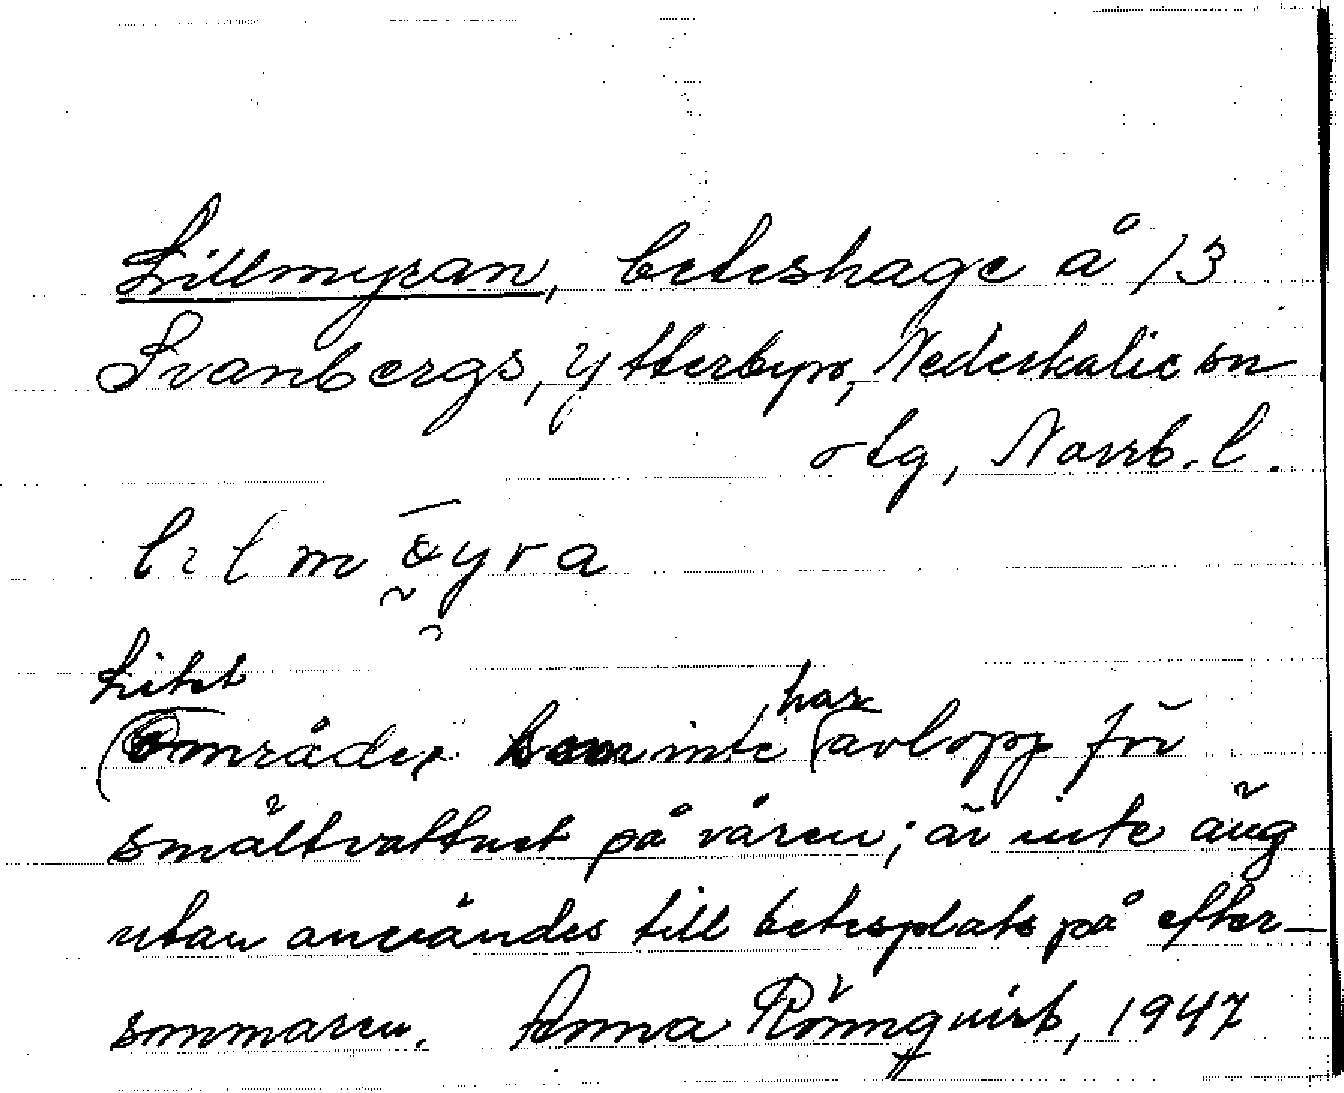 Lillmyran, beteshage å 13
Svanbergs, Ytterbyn, Nederkalix sn
o tg, Norrb. l.
Litet
område inte har avlopp för
smältvattnet på våren; är inte äng
utan användes till betesplats på efter-
sommaren. Anna Rönnquist, 1947